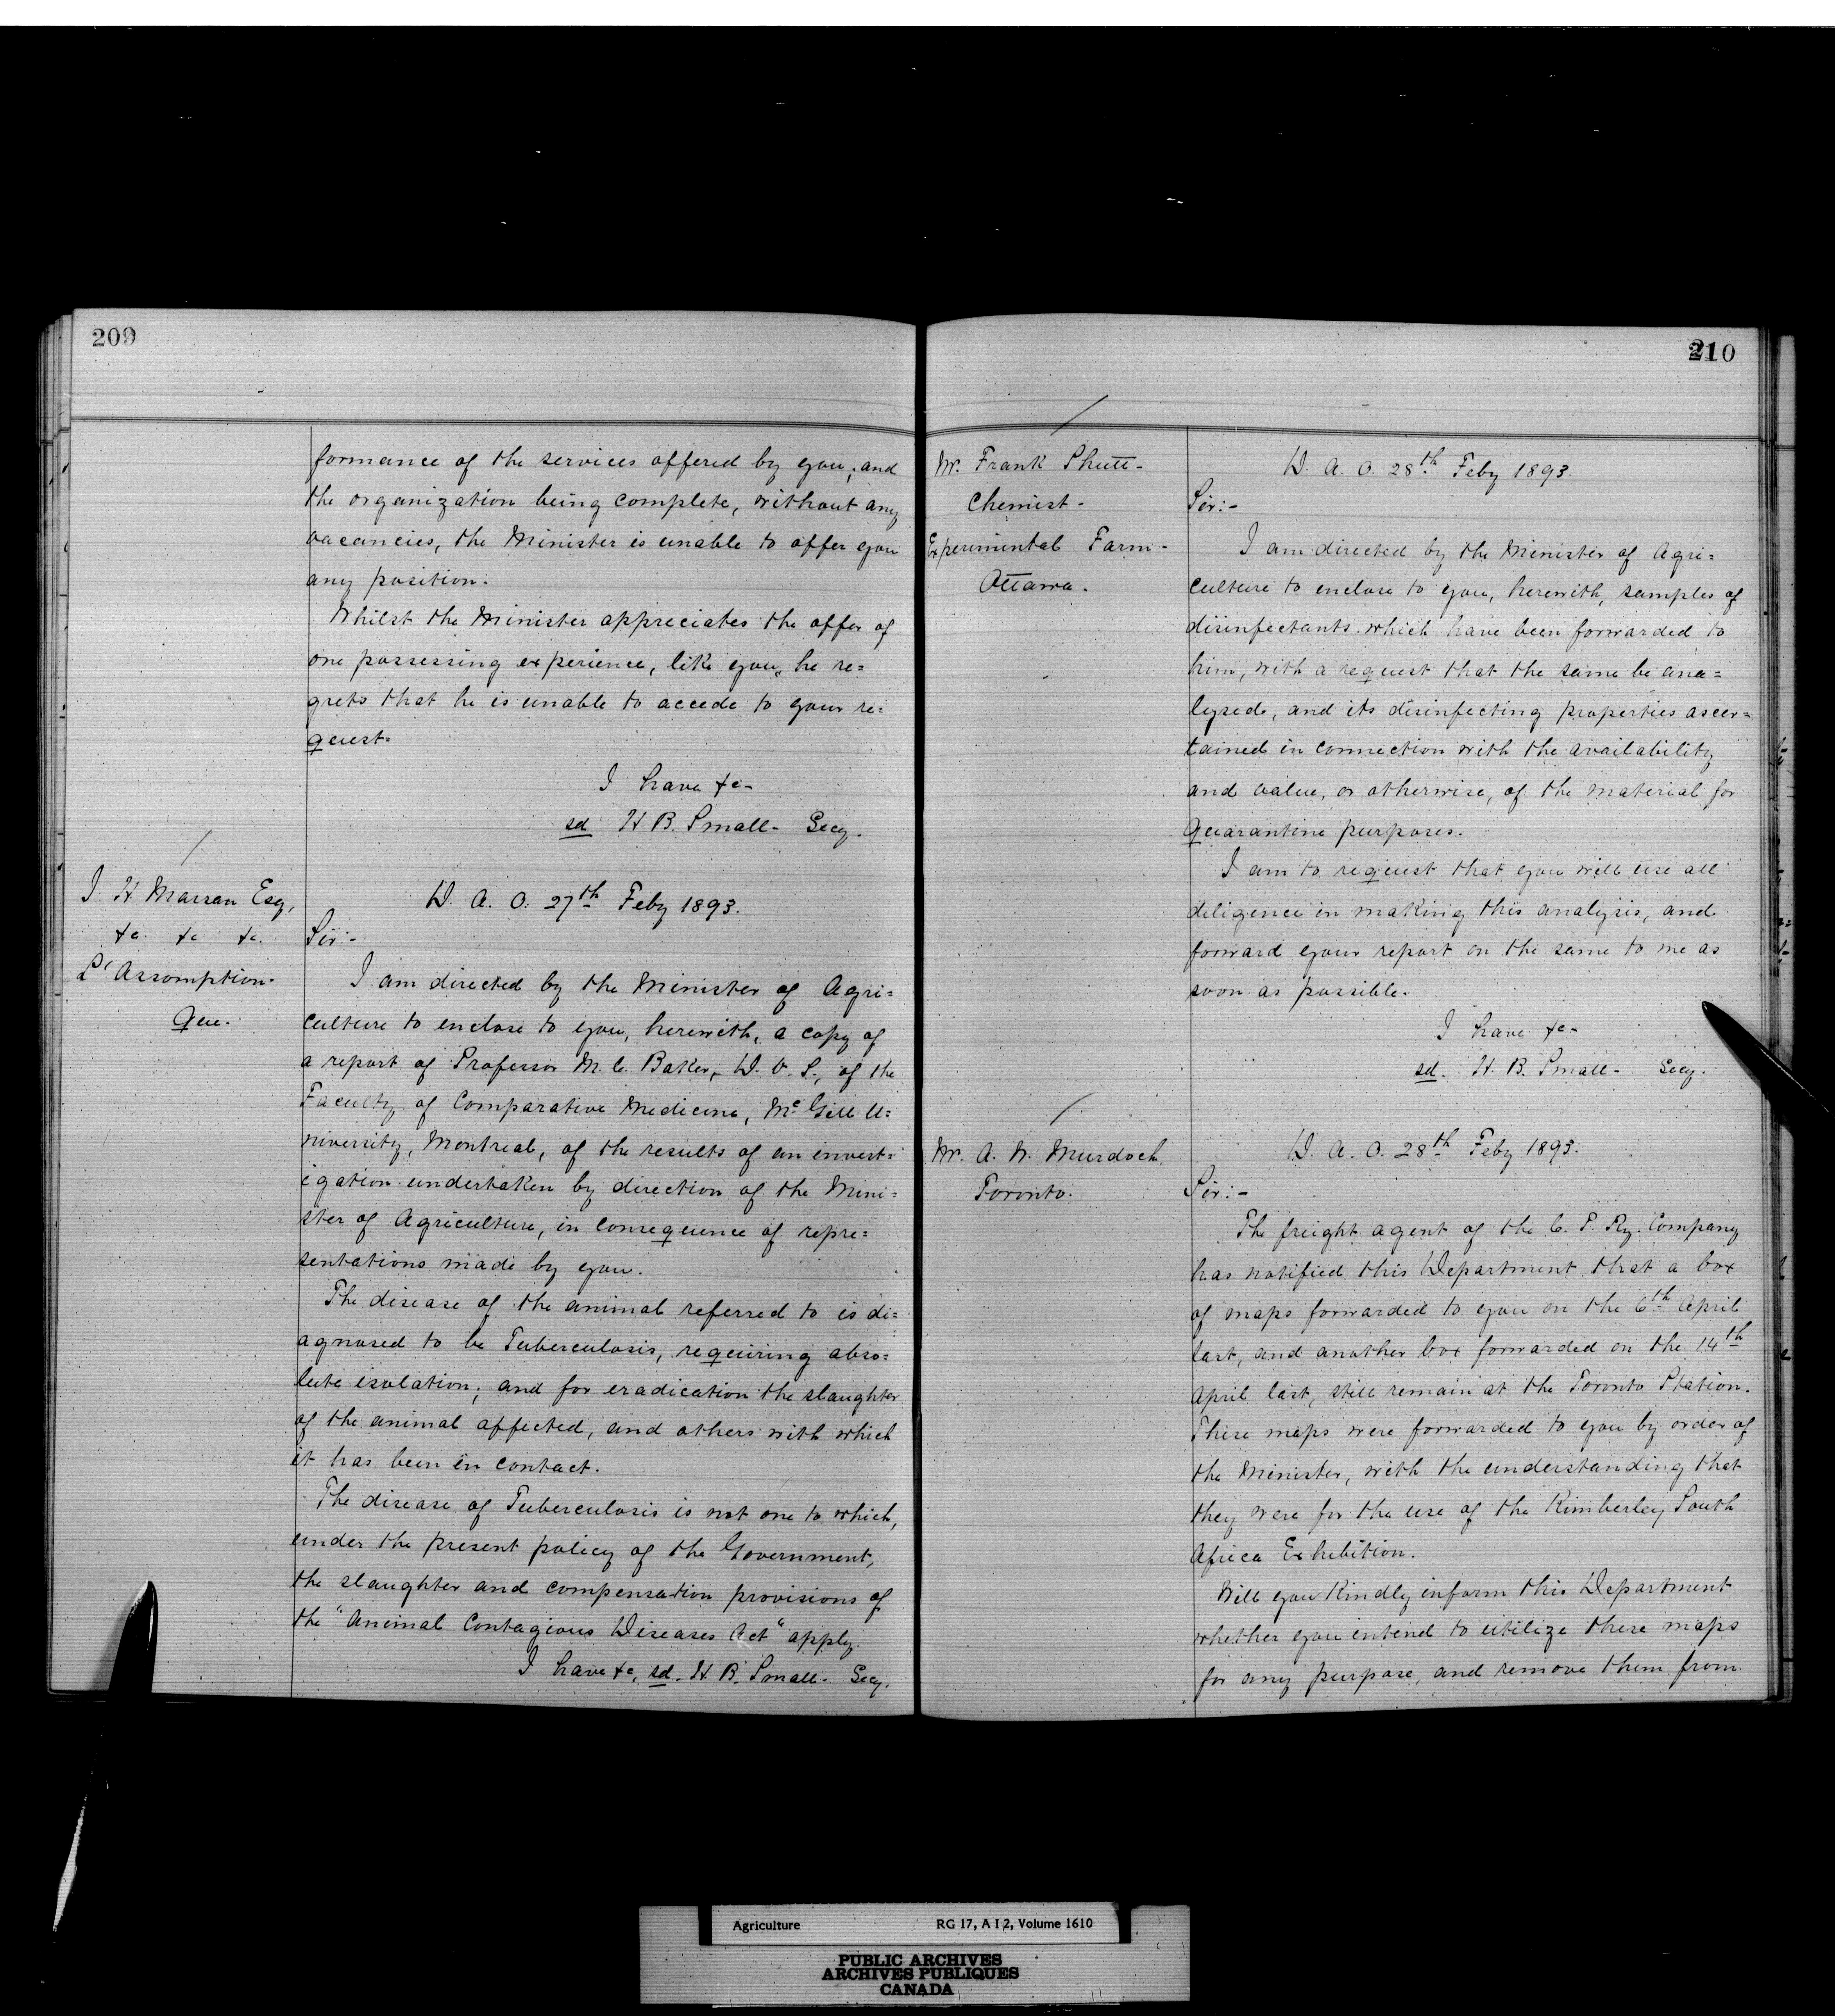 209
formance of the services offered by you; and
the organization being complete, without any
vacancies, the Minister is unable to offer you
any position.
Whilst the Minister appreciates the offer of
one possessing experience, like you, he re=
grets that he is unable to accede to your re=
quest.
I have &c-
sd H. B. Small- Secy.
J. H. Marsan Esq,
&c. &c &c.
L'Assomption.
Que.
D. A. O. 27th Feby 1893.
Sir:-
I am directed by the Minister of Agri=
culture to enclose to you, herewith, a copy of
a report of Professor M. C. Baker, D. V. S., of the
Faculty of Comparative Medicine, Mc Gill U=
niversity, Montreal, of the results of an invest=
igation undertaken by direction of the Mini=
ster of Agriculture, in consequence of repre=
sentations made by you.
The disease of the animal referred to is di=
agnosed to be Tuberculosis, requiring abso=
lute isolation; and for eradication the slaughter
of the animal affected, and others with which
it has been in contact.
The disease of Tuberculosis is not one to which,
under the present policy of the Government,
the slaughter and compensation provisions of
the "Animal Contagious Diseases Act" apply.
I have &c, sd. H. B. Small. Secy.
210
Mr. Frank Shutt-
Chemist-
Experimental Farm-
Ottawa.
D. A. O. 28th Feby 1893.
Sir:-
I am directed by the Minister of Agri=
culture to enclose to you, herewith, samples of
disinfectants which have been forwarded to
him, with a request that the same be ana=
lysed, and its disinfecting properties ascer=
tained in connection with the availability
and value, or otherwise, of the material for
Quarantine purposes.
I am to request that you will use all
diligence in making this analysis, and
forward your report on the same to me as
soon as possible.
I have &c-
sd. H. B. Small- Secy.
Mr. A. N. Murdoch,
Toronto.
D. A. O. 28th Feby 1893.
Sir:-
The freight agent of the C. P. Ry. Company
has notified this Department that a box
of maps forwarded to you on the 6th April
last, and another box forwarded on the 14th
April last, still remain at the Toronto Station.
These maps were forwarded to you by order of
the Minister, with the understanding that
they were for the use of the Kimberley South
Africa Exhibition.
Will you kindly inform this Department
whether you intend to utilize these maps
for any purpose, and remove them from
Agriculture RG 17, A I 2, Volume 1610
PUBLIC ARCHIVES
ARCHIVES PUBLIQUES
CANADA